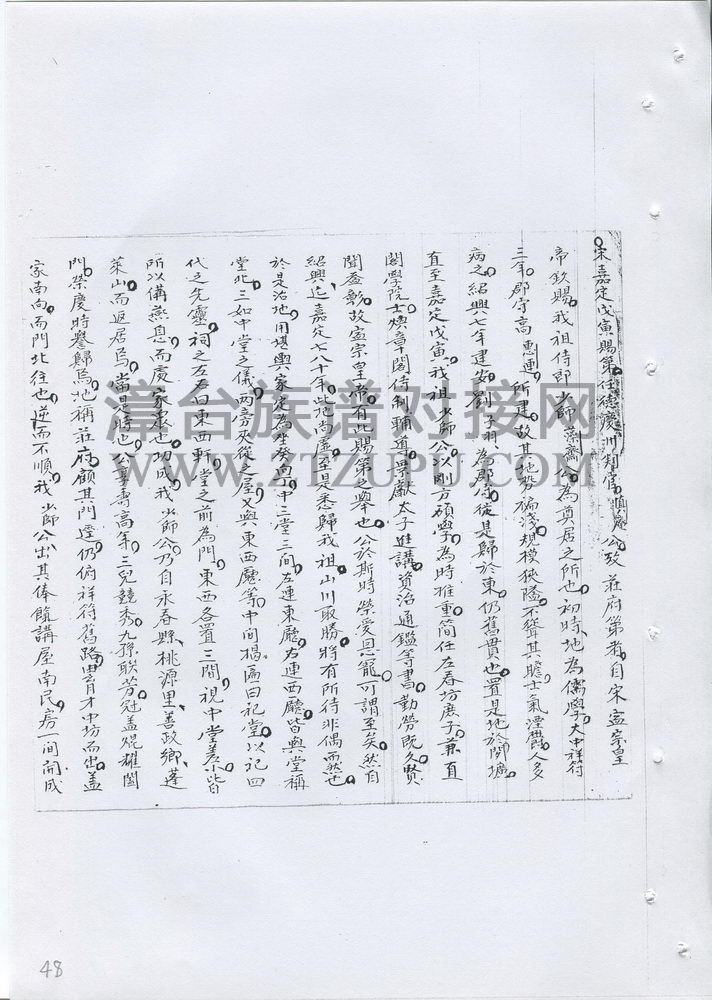 宋嘉定戊寅賜第任德慶州判官慎齋公攷莊府第者自宋寧宗皇
帝欽賜我祖侍郎少師藻齋公為奠居之所也初時地為儒學大中祥符
三年郡守高惠連所建故其地勢偏淺規模狹隘不聳其瞻士氣湮鬱人多
病之紹興七年建安劉子羽為郡守從是歸於東仍舊貫也置是地於閒壙
直至嘉定戊寅我祖少師公以剛方碩學為時推重簡任左春坊庶子兼直
閣學院士煥章閣侍制輔導景獻太子進講資治通鑑等書勤勞既久賢
聞益彰故寧宗皇帝有此賜第之舉也公於斯時榮受恩寵可謂至矣然自
紹興迄嘉定七八十年此地尚虛至是悉歸我祖山川最勝將有所待非偶而然也
於是治地用堪輿家定為坐癸向丁中三堂三間左連東廳右連西廳皆與堂稱
堂北三如中堂之儀兩旁夾從之屋又與東西廳等中間揭匾曰祀堂以祀四
代之先靈祠之左右曰東西軒堂之前為門東西各置三間視中堂差小皆
所以備燕息而處家眾也功成我少師公乃自永春縣桃源里善政鄉蓬
萊山而返居焉當是時也公壽高年三兒競秀九孫聯芳冠蓋焜耀閭
門榮慶時譽歸焉地稱莊府顧其門逕仍俯祥符舊路由育才中坊而出蓋
家南向而門北往也逆而不順我少師公出其俸餼講屋南民房一間開成
淳台族谱对接网
WWW.ZTZUPU.COM
48